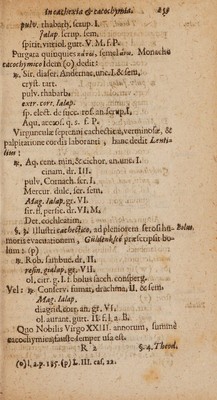 In cathexia & cacochymia. 259
pulv. rhabarb. scrup. I.
Jalap. scrup. sem.
spirit. vitriol. gutt. V. M. f. P.
Purgata quinquies
cacochymico Idem (o) dedit:
℞. Sir. disser. Andernac. unc. I. & sem,
cryst. tart.
pulv. rhabarb.
extr. cort. Ialap.
sp. elect. de succ. ros. an. scrup. I,
Aqu. q. s. f. P.
Virgunculæ septenni cachecticæ, verminosæ, &
palpitatione cordis laboranti, hunc dedit
lius:
℞. Aq. cent. min, & cichor. an. unc. I.
cinam. dr. III.
pulv, Cornach. scr. I,
Mercur. dulc. scr. sem,
Mag. Ialap. gr. VI.
fir. fl. persic. dr. VI, M,
Det. cochleatim.
§. Illustri cachecticæ, ad pleniorem serosi hu- Bolus.
moris evacuationem, Güldenklee præscripsit bo-
lum: (p)
℞. Rob. sambuc. dr. II,
resin. gialap. gr. VII.
ol. cit. g. I. f. bolus sacch. consperg.
Vel: ℞. Conserv. fumar. drachma, II. & sem
Mag. Ialap.
diagrid. corr. an. gr. VI,
ol. aurant. gutt. II. f. l. a. B.
Quo Nobilis Virgo XXIII. annorum, summè
cacochymica, faustè semper usa est.
R 2 §. 4. Theod.
(o) l, 2. p. 185. (p) L. III. cas, 22.